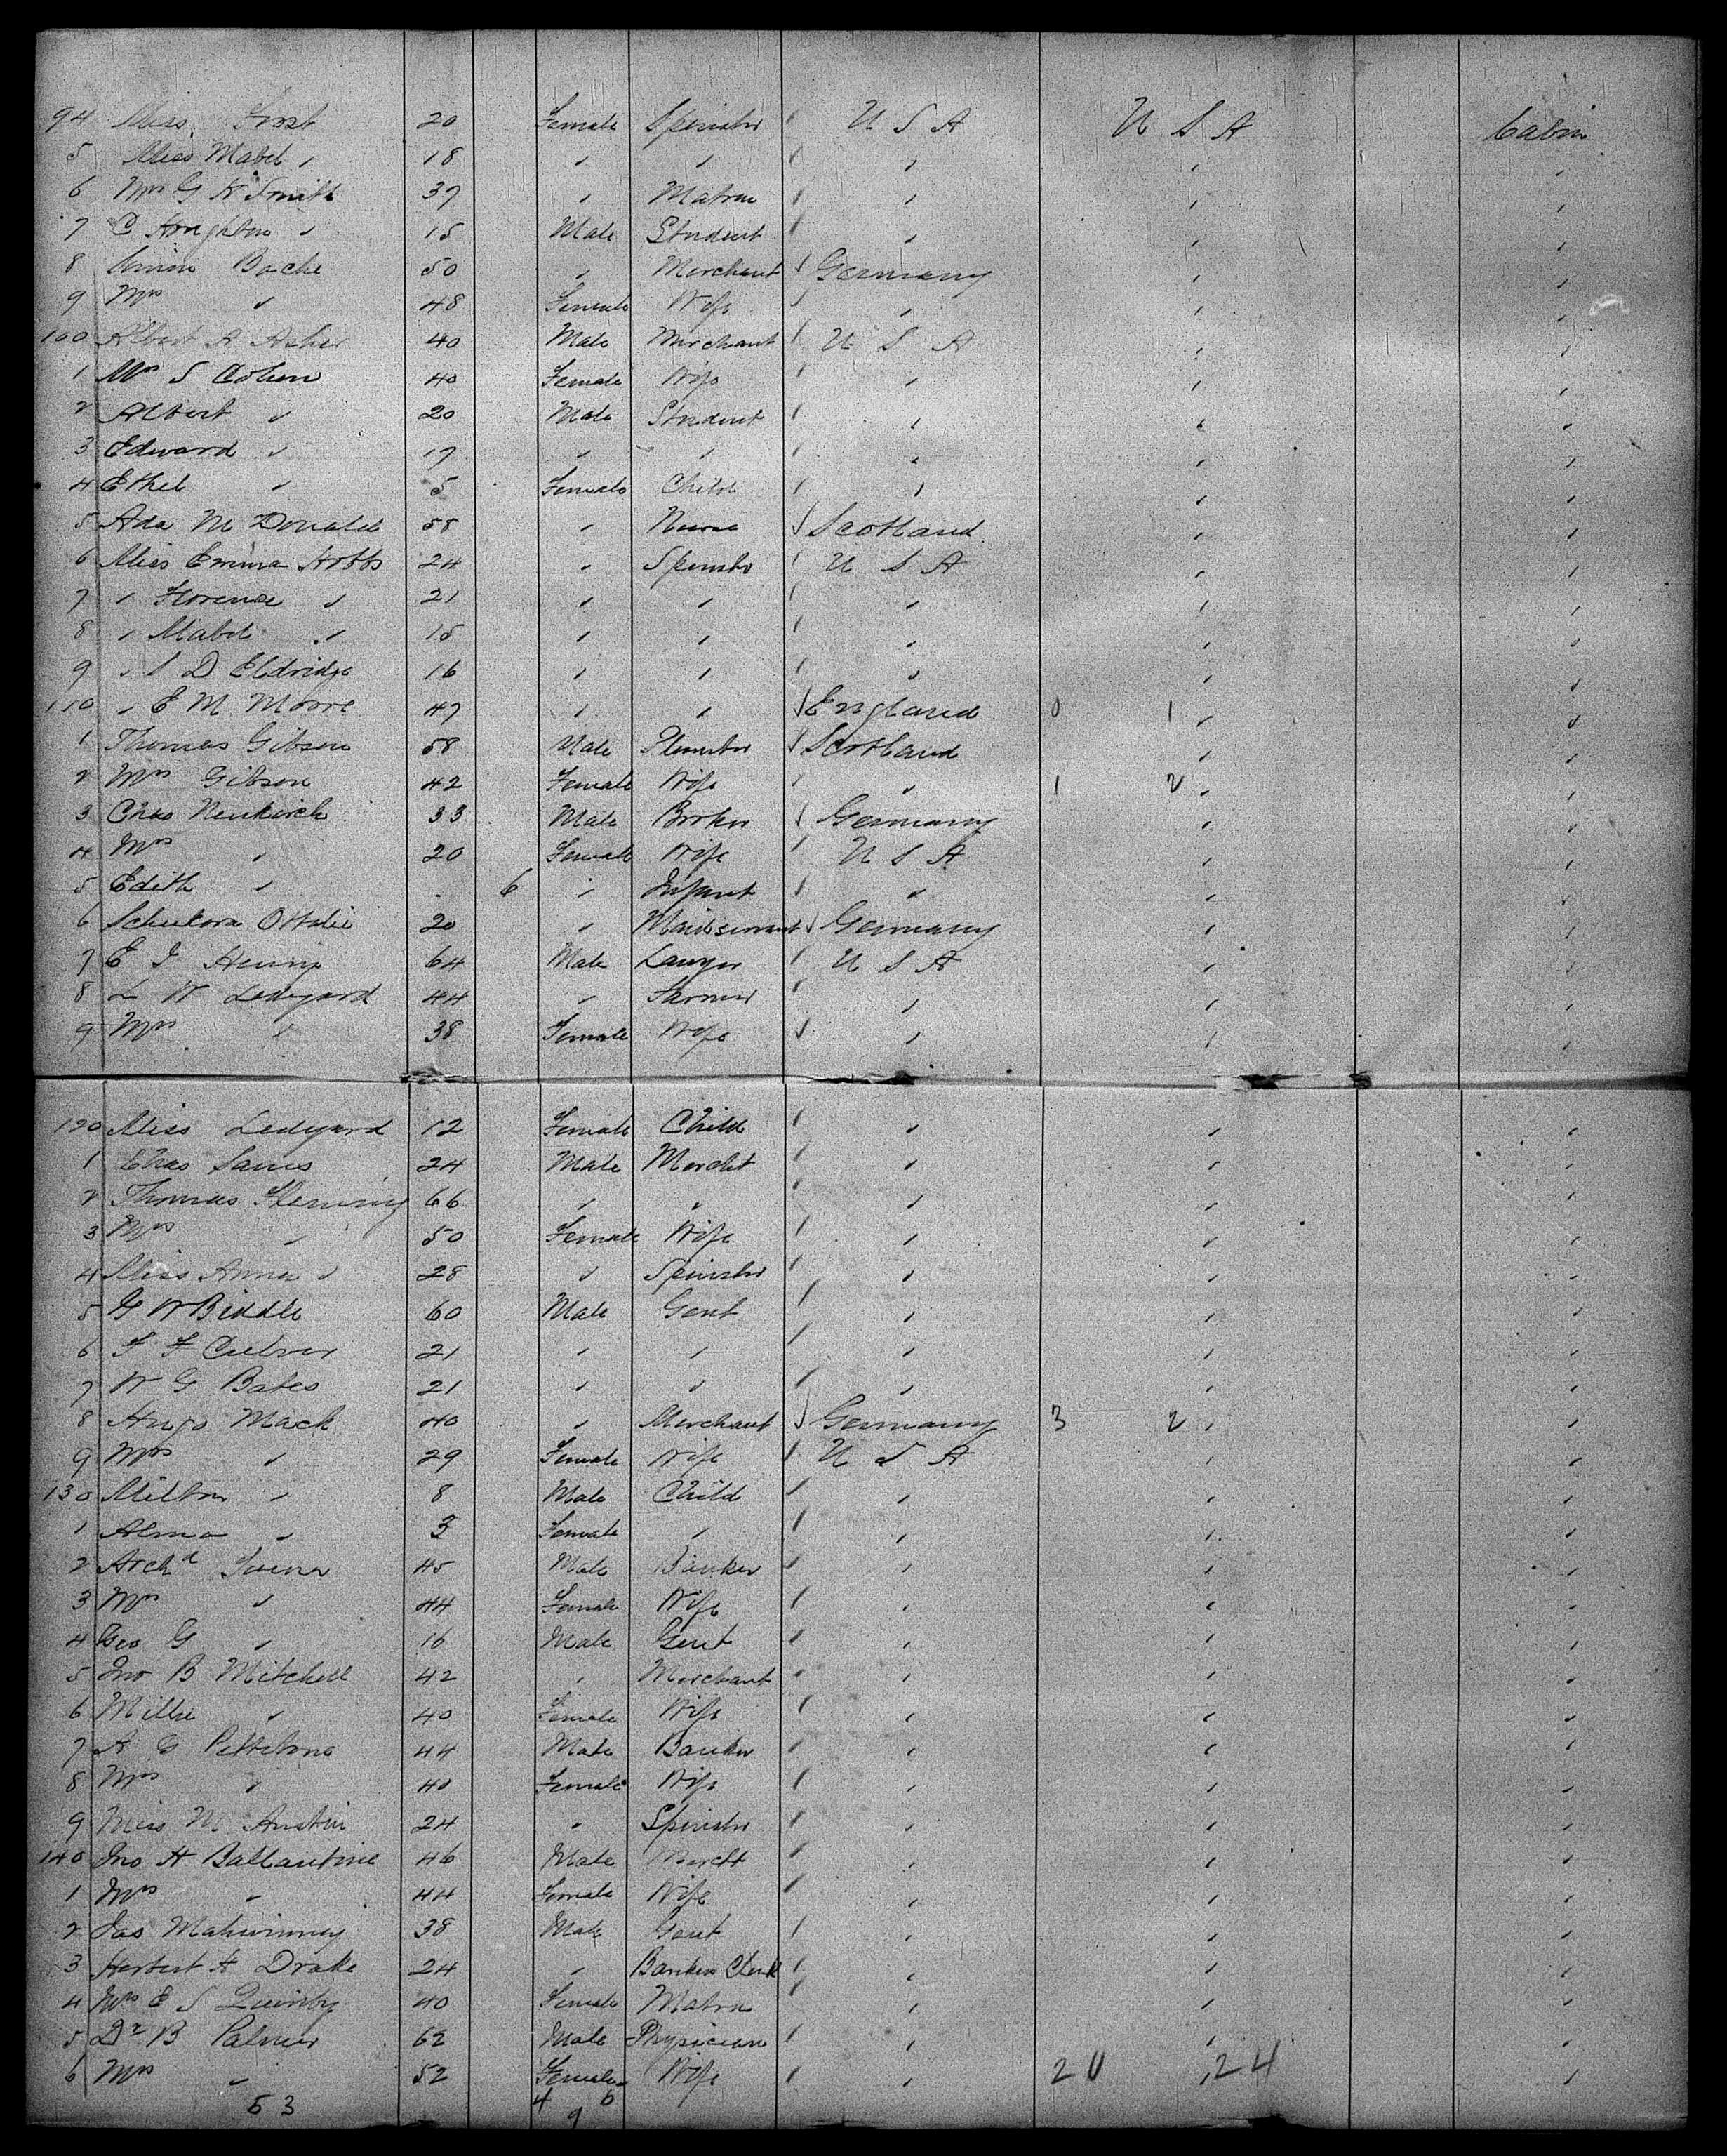 94 Miss Frost 20 Female Spinster U S A U S A Cabin
5 Miss Mabel " 18 " " " " "
6 Mrs G H Smith 37 " Matron " " "
7 C Houghton " 15 Male Student " " "
8 Simon Bache 50 " Merchant Germany " "
9 Mrs " 48 Female Wife " " "
100 Albert A Asher 40 Male Merchant U S A " "
1 Mrs S Cohen 40 Female Wife " " "
2 Albert " 20 Male Student " " "
3 Edward " 17 " " " " "
4 Ethel " 5 Female Child " " "
5 Ada McDonald 58 " Nurse Scotland " "
6 Miss Emma Hobbs 24 " Spinster U S A " "
7 " Florence " 21 " " " " "
8 " Mabel " 15 " " " " "
9 " S D Eldridge 16 " " " " "
110 " E M Moore 47 " " England 0 1 " "
1 Thomas Gibson 58 Male Plumber Scotland " "
2 Mrs Gibson 42 Female Wife " 1 2 " "
3 Chas Neukirch 33 Male Broker Germany " "
4 Mrs " 20 Female Wife U S A " "
5 Edith " 6 " Infant " " "
6 Ottolie 20 " Maidservant Germany " "
7 E J Henry 64 Male Lawyer U S A " "
8 L W Ledyard 44 " Farmer " " "
9 Mrs " 38 Female Wife " " "
120 Miss Ledyard 12 Female Child " " "
1 Chas 24 Male Mercht " " "
2 Thomas Fleming 66 " " " " "
3 Mrs " 50 Female Wife " " "
4 Miss Anna " 28 " Spinster " " "
5 G W Biddle 60 Male Gent " " "
6 F F Culver 21 " " " " "
7 W G Bates 21 " " " " "
8 Hugo Mack 40 " Merchant Germany 3 2 " "
9 Mrs " 29 Female Wife U S A " "
130 Milton " 8 Male Child " " "
1 Alma " 3 Female " " " "
2 Archd 45 Male Banker " " "
3 Mrs " 44 Female Wife " " "
4 Geo G " 16 Male Gent " " "
5 Jno B Mitchell 42 " Merchant " " "
6 Millie " 40 Female Wife " " "
7 A G 44 Male Banker " " "
8 Mrs " 40 Female Wife " " "
9 Miss M Austin 24 " Spinster " " "
140 Jno H Ballantine 46 Male Mercht " " "
1 Mrs " 44 Female Wife " " "
2 Jas 38 Male Gent " " "
3 Herbert H Drake 24 " Bankers Clerk " " "
4 Mrs E S Quinby 40 Female Matron " " "
5 Dr B Palmer 62 Male Physician " " "
6 Mrs " 52 Female Wife " 20 24 " "
53 4 9 6